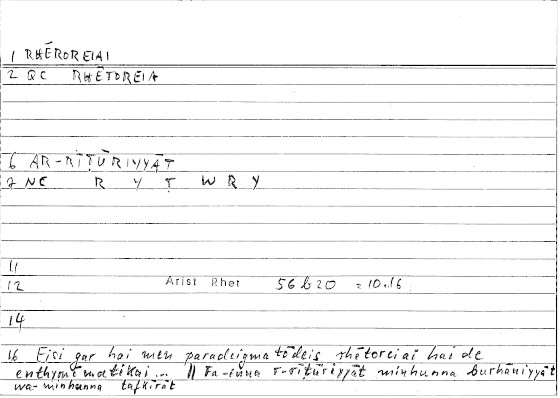 1 RHĒROREIAI
2 QC RHĒTOREIA
6 AR-RĪṬŪRIYYĀT
7 NC R Y Ṭ W R Y
11
12 Arist Rhet 56b20 = 10.16
14
16 Eisi gar hai men paradeigmatōdeis rhētoreiai hai de
enthymēmatikai... || Fa-inna r-rīṭūriyyāt minhunna burhāniyyāt
wa-minhunna tafkīrāt